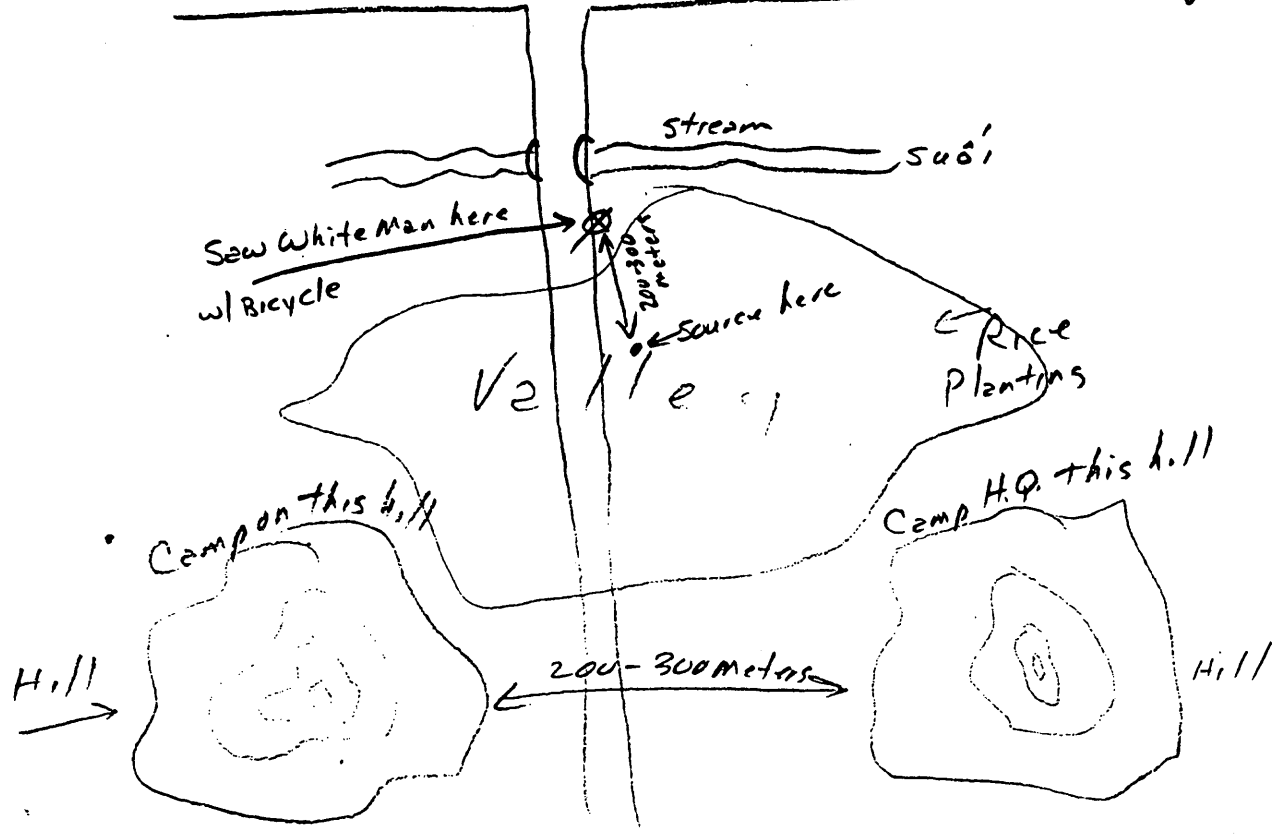 stream
suối
Saw White Man here
w/ Bicycle
200-300
meters
source here
Rice
Planting
Valley
Camp on this hill
Camp H.Q. this hill
Hill
200-300 meters
Hill